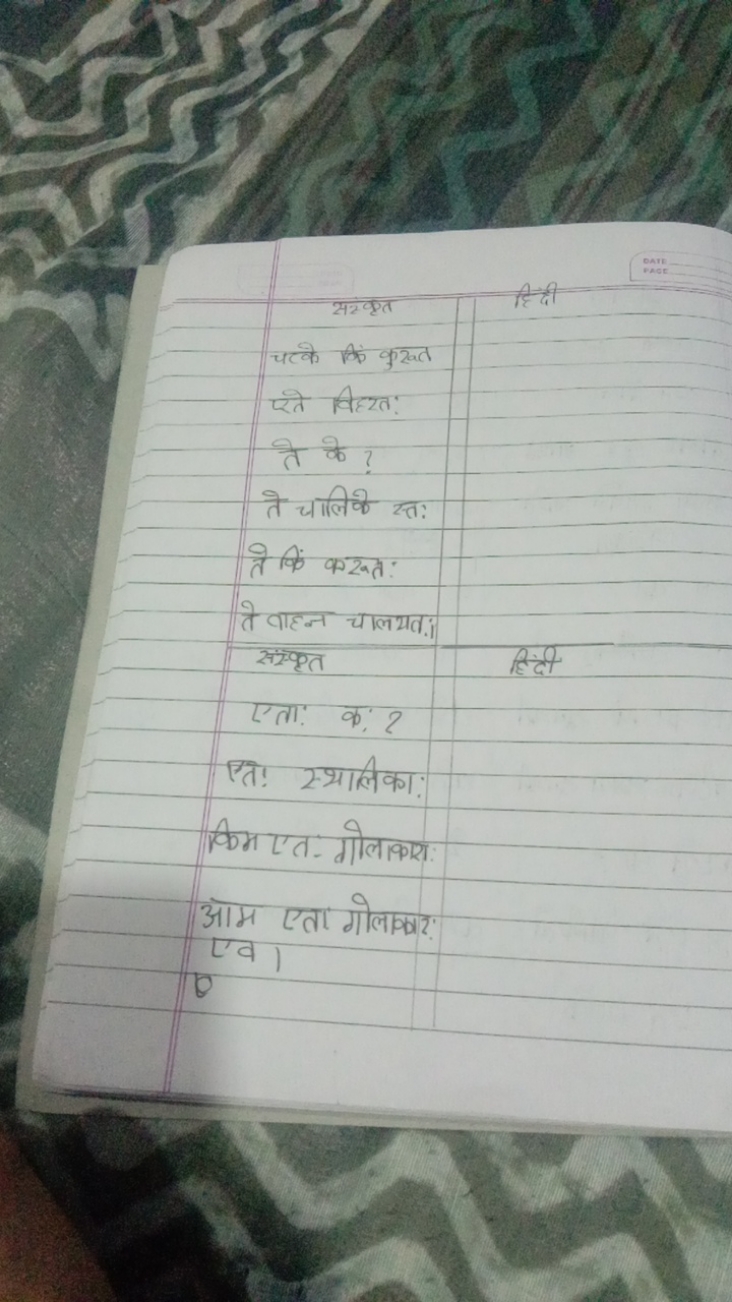 DATE
PAGE
संस्कृत हिंदी
चटके किं कुरूत
एते विहरत:
ते के ?
ते चालिके स्त:
ते किं करूत:
ते वाहन चालयत:।
संस्कृत हिंदी
एता: क: ?
एते: स्थालिका:
किम एत: गोलाकारा:
आम एता गोलाकार:
एव ।